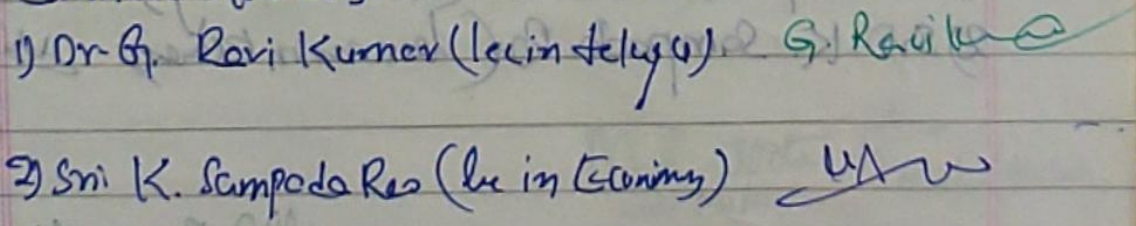 1) Dr. G. Ravi Kumar (lec in telugu). G. Ravik
2) Sri K. Sampada Rao (lec in Economy)